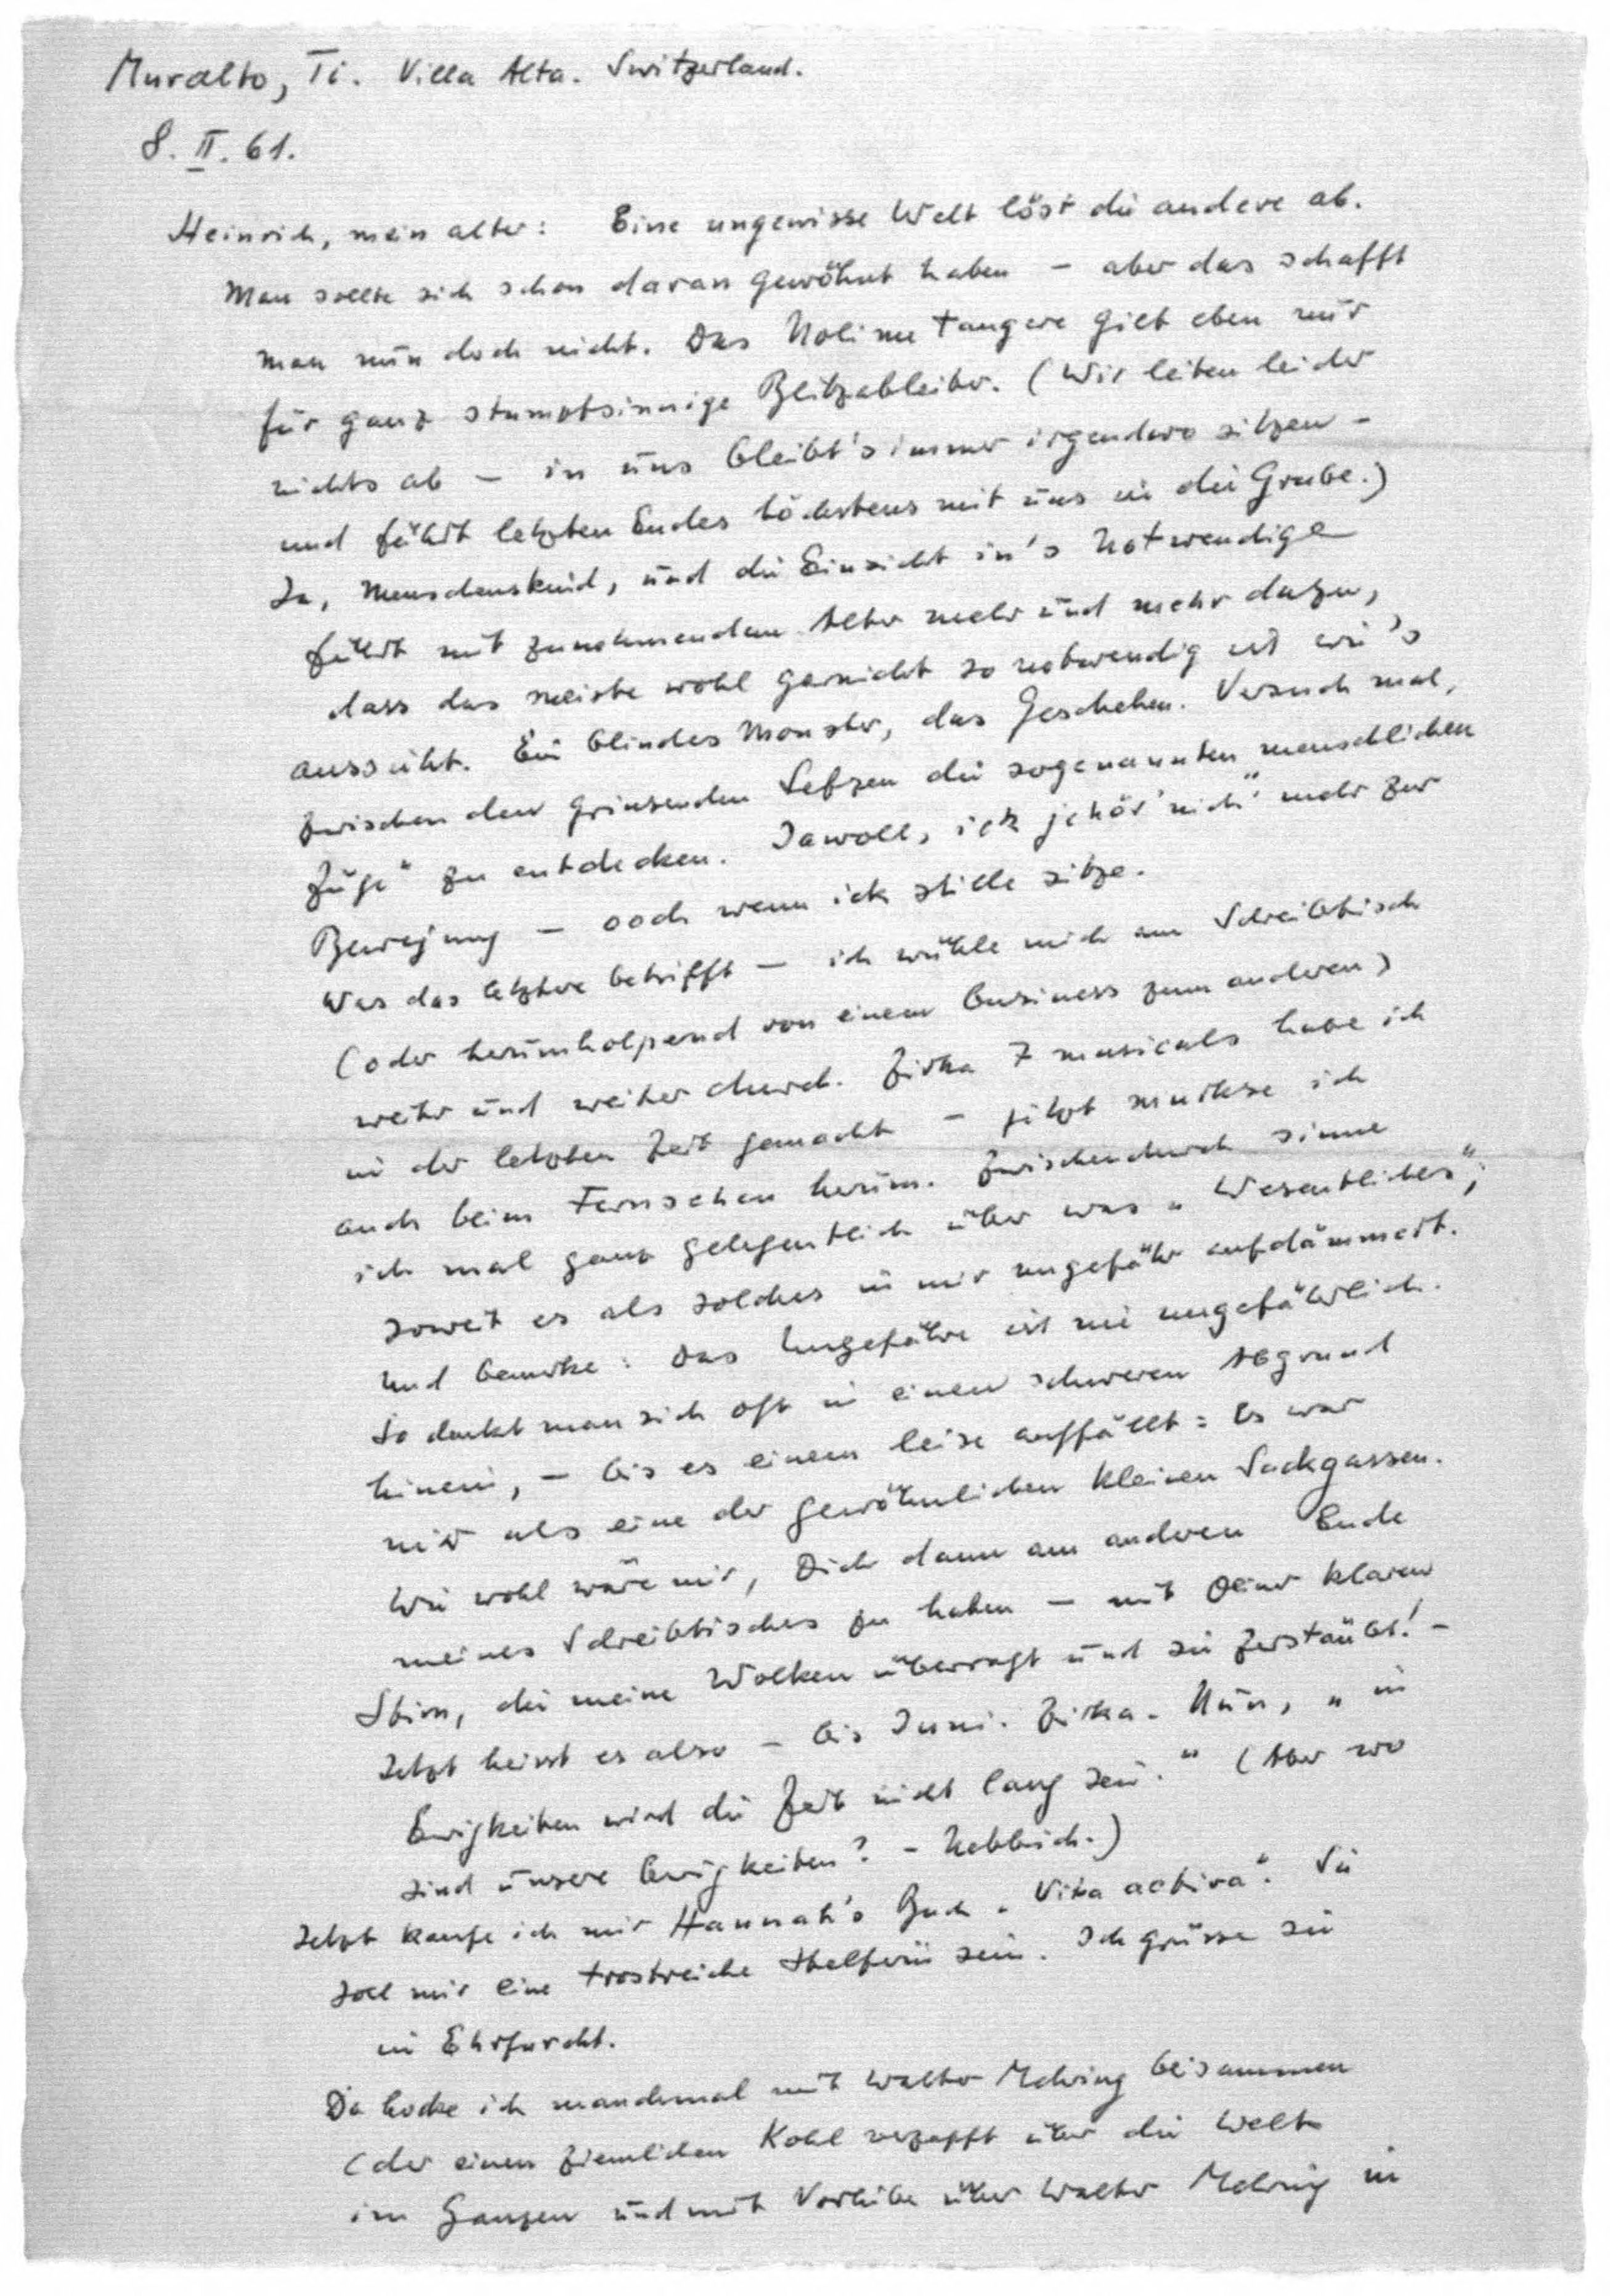 Muralto, Ti. Villa Alta. Switzerland.
8. II. 61.
Heinrich, mein alter: Eine ungewisse Welt löst die andere ab.
Man sollte sich schon daran gewöhnt haben – aber das schafft
man nun doch nicht. Das Noli me tangere gilt eben nur
für ganz stumpfsinnige Blitzableiter. (Wir leiten leider
nichts ab – in uns bleibt's immer irgendwo sitzen –
und fährt letzten Endes höchstens mit uns in die Grube.)
Ja, Menschenskind, und die Einsicht in's Notwendige
führt mit zunehmendem Alter mehr und mehr dazu,
dass das meiste wohl garnicht so notwendig ist wie's
aussieht. Ein blindes Monster, das Geschehen. Versuch mal,
zwischen den grinsenden Lefzen die sogenannten „menschlichen
Züge“ zu entdecken. Jawoll, ick jehör' nich' mehr zur
Bewejung – ooch wenn ick stille sitze.
Was das letztere betrifft – ich wühle mich am Schreibtisch
(oder herumholpernd von einem business zum anderen)
weiter und weiter durch. Zirka 7 musicals habe ich
in der letzten Zeit gemacht – jetzt murkse ich
auch beim Fernsehen herum. Zwischendurch sinne
ich mal ganz gelegentlich über was „Wesentliches“;
soweit es als solches in mir ungefähr aufdämmert.
Und bemerke: Das Ungefähre ist nie ungefährlich.
So denkt man sich oft in einen schweren Abgrund
hinein, – bis es einem leise auffällt: Es war
nur als eine der gewöhnlichen kleinen Sackgassen.
Wie wohl wäre mir, Dich dann am anderen Ende
meines Schreibtisches zu haben – mit Deiner klaren
Stirn, die meine Wolken überragt und sie zerstäubt! –
Jetzt heisst es also – bis Juni. Zirka. Nun, „in
Ewigkeiten wird die Zeit nicht lang sein.“ (Aber wo
sind unsere Ewigkeiten? – Nebbich.)
Jetzt kaufe ich mir Hannah's Buch „Vita activa“. Sie
soll mir eine trostreiche Helferin sein. Ich grüsse sie
in Ehrfurcht.
Da hocke ich manchmal mit Walter Mehring beisammen
(der einen ziemlichen Kohl verzapft über die Welt
im Ganzen und mit Vorliebe über Walter Mehring in